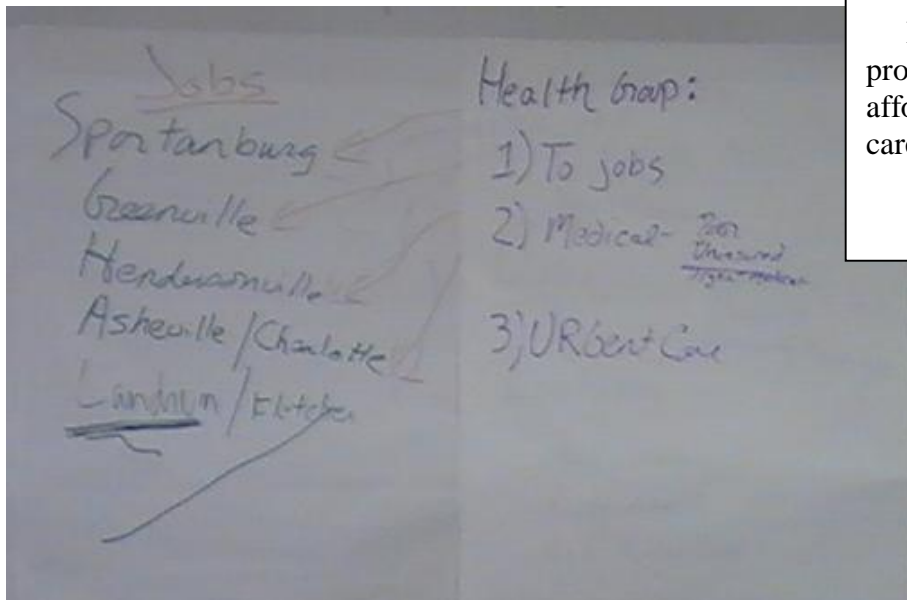 Jobs
Spartanburg
Greenville
Hendersonville
Asheville / Charlotte
Landrum / Fletcher
Health Group:
1) To jobs
2) Medical - Poor
Uninsured
3) URGent Care
pro
affo
car